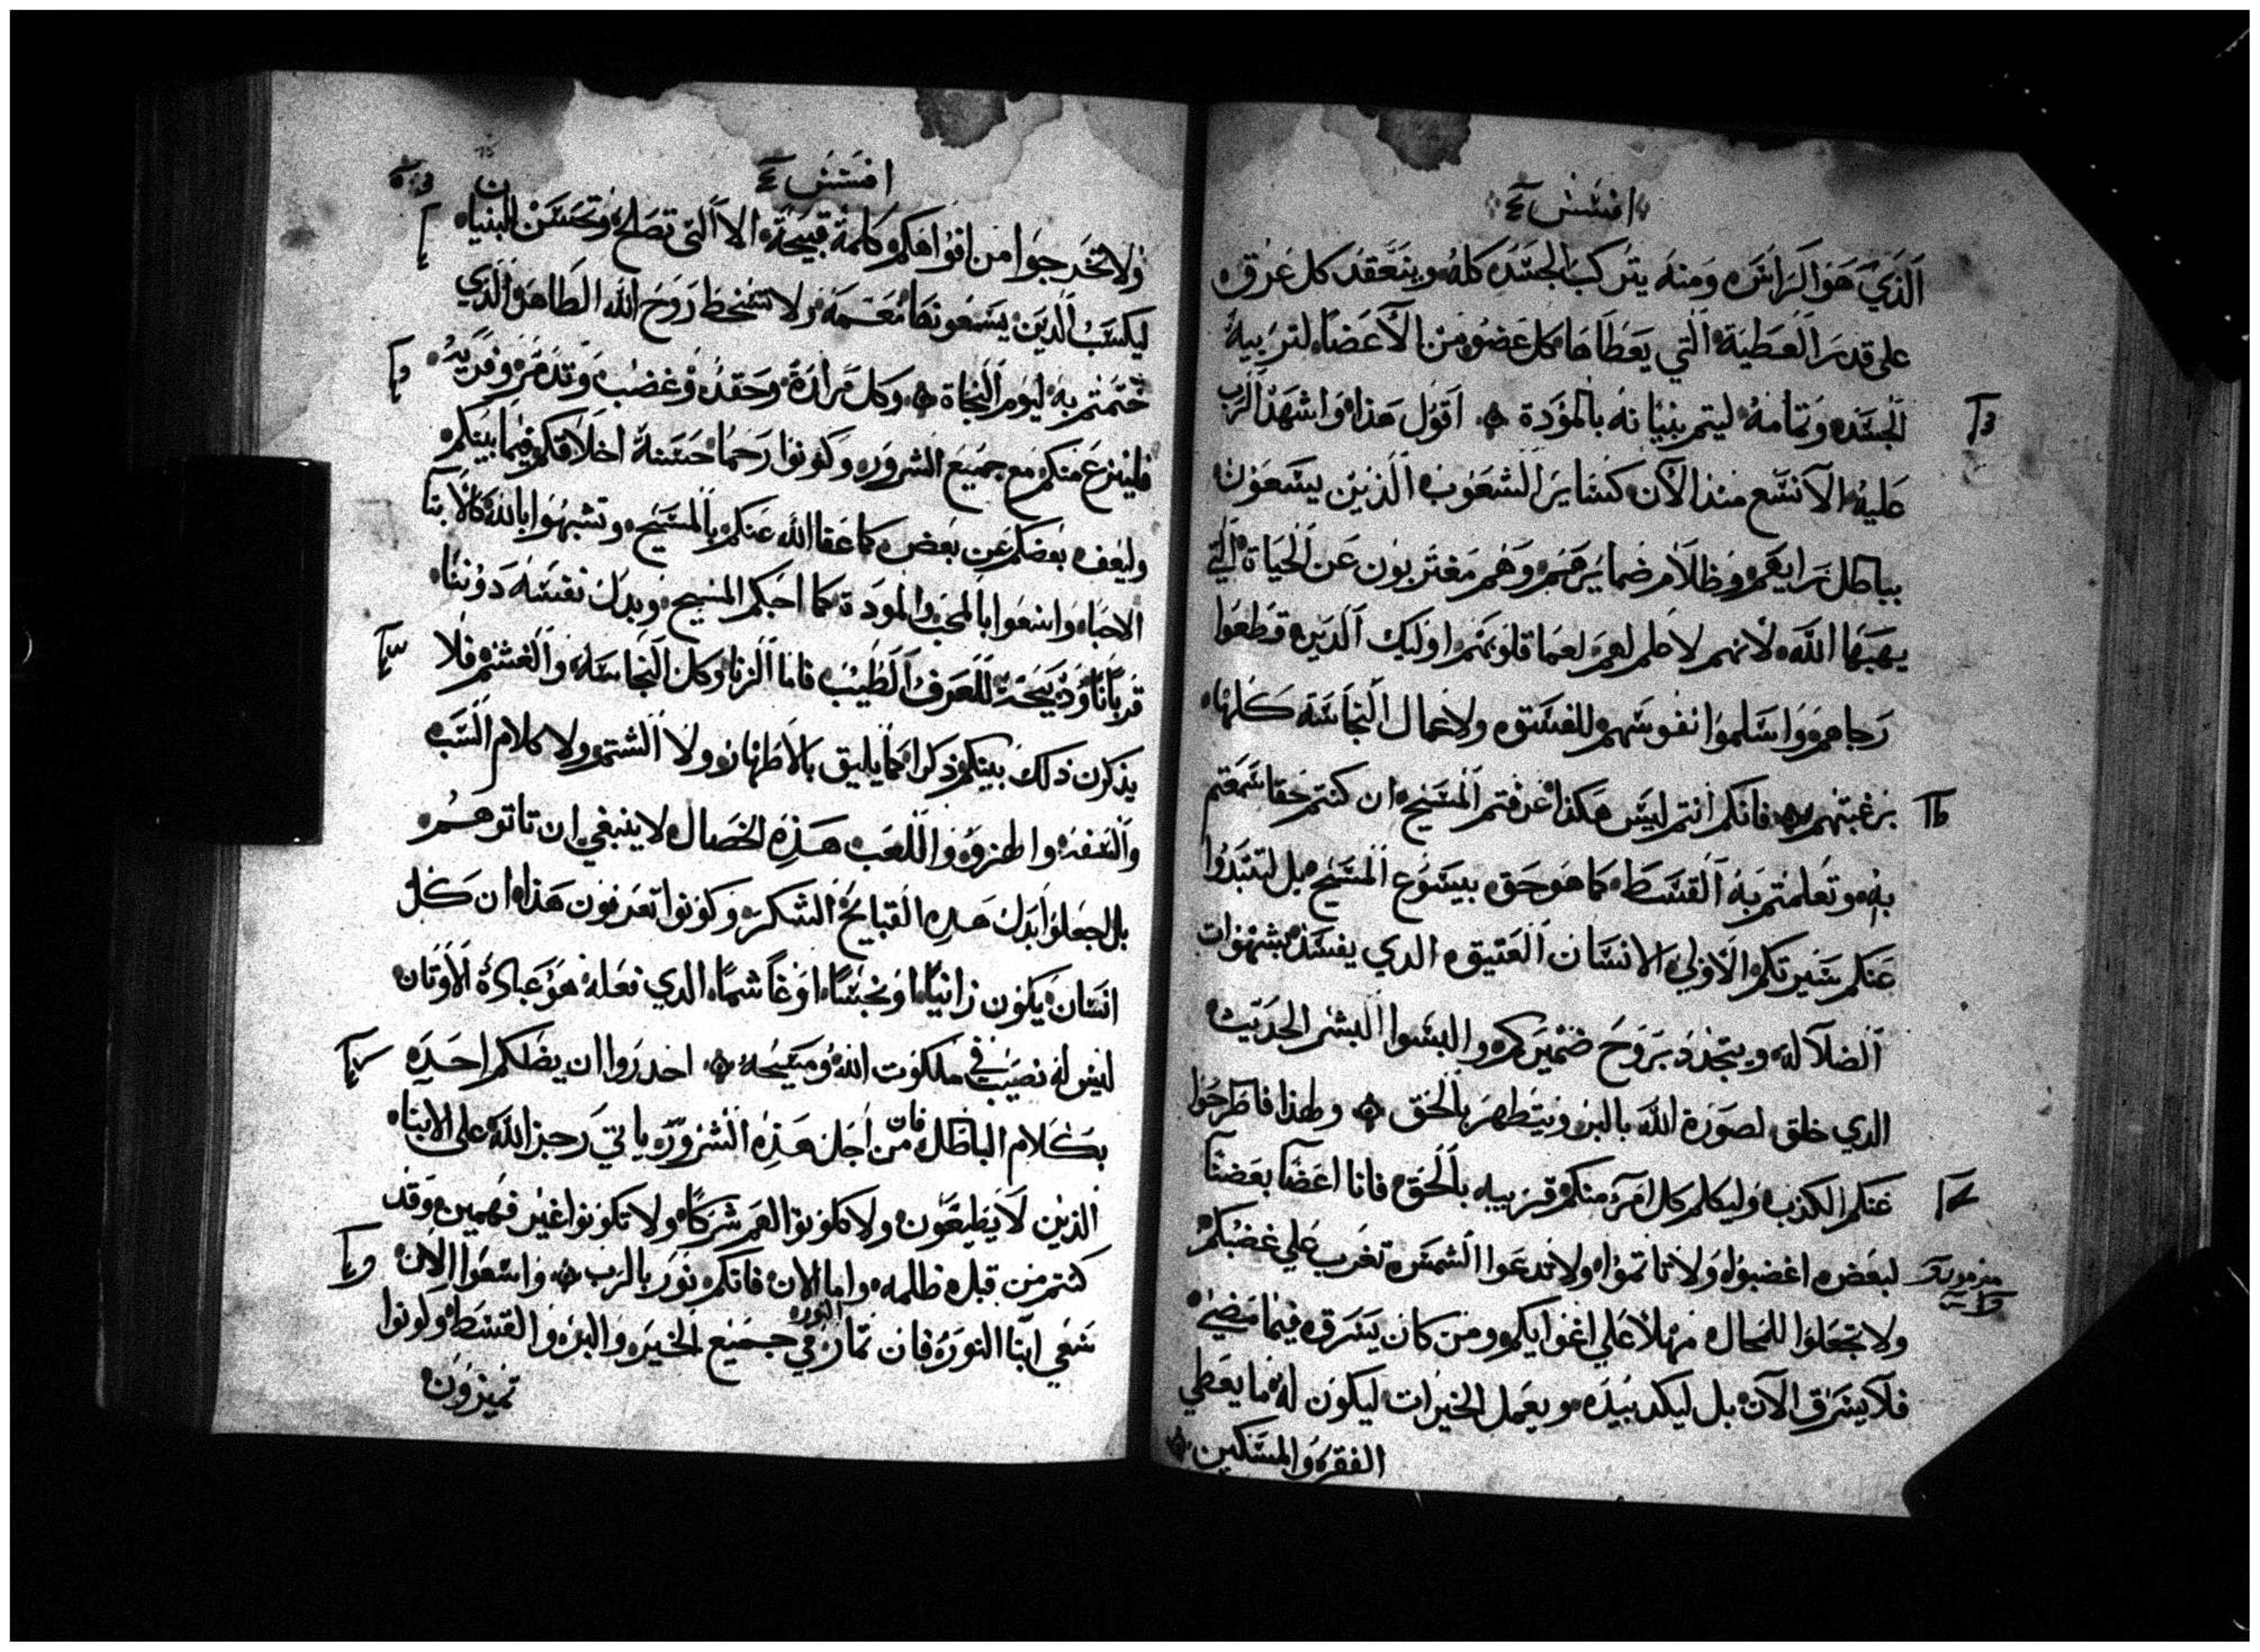 افسس
الذي هو الراس ومنه يتركب الجسد كله وينعقد كل عرق
على قدر العطية التي يعطاها كل عضو من الاعضا لتربية
الجسد وتمامه ليتم بنيانه بالمودة اقول هذا واشهد الرب
عليه الا تسع منذ الان كساير الشعوب الذين يسعون
بباطل رايهم وظلام ضمايرهم وهم مغتربون عن الحياة التي
يهبها الله لانهم لا حلم لهم لعما قلوبهم اوليك الدين قطعوا
رجاهم واسلموا نفوسهم للفسق ولاعمال النجاسة كلها
برغبتهم فانكم انتم ليس هكذا عرفتم المسيح ان كنتم حقا سمعتم
به وتعلمتم به القسط كما هو حق بيسوع المسيح بل لتنبدوا
عنكم سيرتكم الاولى الانسان العتيق الدي يفسد بشهوات
الضلالة ويتجدد بروح ضميركم والبسوا البشر الحديث
الدي خلق لصورة الله بالبر ويتطهر بالحق ولهذا فاطرحوا
عنكم الكذب وليكلم كل امرء منكم قريبه بالحق فانا اعضا بعضنا
لبعض اغضبوا ولا تاتموا ولا تدعوا الشمس تغرب علي غضبكم
ولا تجعلوا للمحال مهلا علي اغوايكم ومن كان يسرق فيما مضي
فلا يسرق الان بل ليكد بيده ويعمل الخيرات ليكون له ما يعطي
الفقره والمسكين
افسس
ولا تخرجوا من افواهكم كلمة قبيحة الا التي تصلح وتحسن البنيان
ليكسب الدين يسمعونها نعمة ولا تسخط روح الله الطاهر الذي
ختمتم به ليوم النجاة وكل مرارة وحقد وغضب وتدمر وفرية
فلينزع منكم مع جميع الشرور وكونوا رحما حسنة اخلاقكم فيما بينكم
وليعف بعضكم عن بعض كما عفا الله عنكم بالمسيح وتشبهوا بالله كالابنا
الاحبا واسعوا بالمحب والمودة كما احبكم المسيح وبدل نفسه دوننا
قربانا وذبيحة للعرف الطيب فاما الزنا وكل النجاسة والغشم فلا
يذكرن ذلك بينكم ذكرا كما يليق بالاطهار ولا الشتم ولا كلام السب
والسفه والهزو واللعب هذه الخصال لا ينبغي ان تاتوهم
بل اجعلوا بدل هده القبايح الشكر وكونوا تعرفون هذا ان كل
انسان يكون زانيا او نجسا او غاشما الدي فعله هو عبادة الاوتان
ليس له نصيب في ملكوت الله ومسيحه احدروا ان يضلكم احد
بكلام الباطل فان من اجل هذه الشرور ياتي رجز الله على الابنا
الذين لا يطيعون ولا تكونوا لهم شركا ولا تكونوا غير فهمين وقد
كنتم من قبل ظلمه واما الان فانكم نور بالرب واسعوا الان
سعي ابنا النور فان ثمار النور في جميع الخير والبر والقسط وكونوا
تميزون